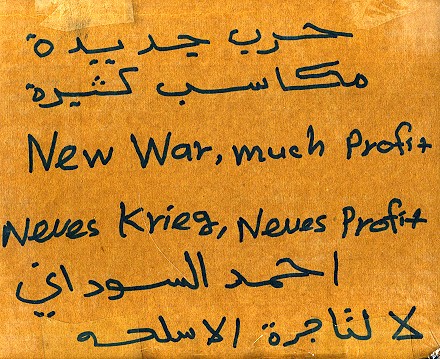 حرب جديدة
مكاسب كثيرة
New War, much Profit
Neues Krieg, Neues Profit
احمد السوداني
لا لتاجرة الاسلحه